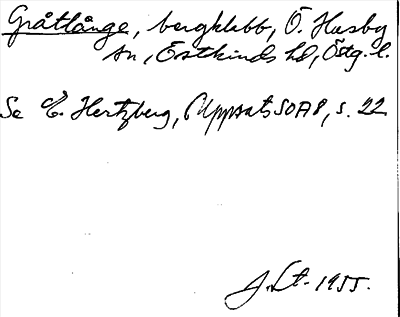 Gråtlånge, bergklabb, Ö. Husby
sn, Östkinds hd, Östg. l.
Se E. Hertzberg, Uppsats SOA8, s. 22
J. St. 1955.